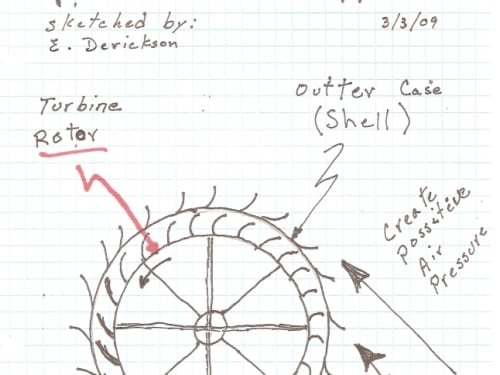 sketched by:
E. Derickson
3/3/09
Turbine
Rotor
Outter Case
(Shell)
Create
Possative
Air
Pressure